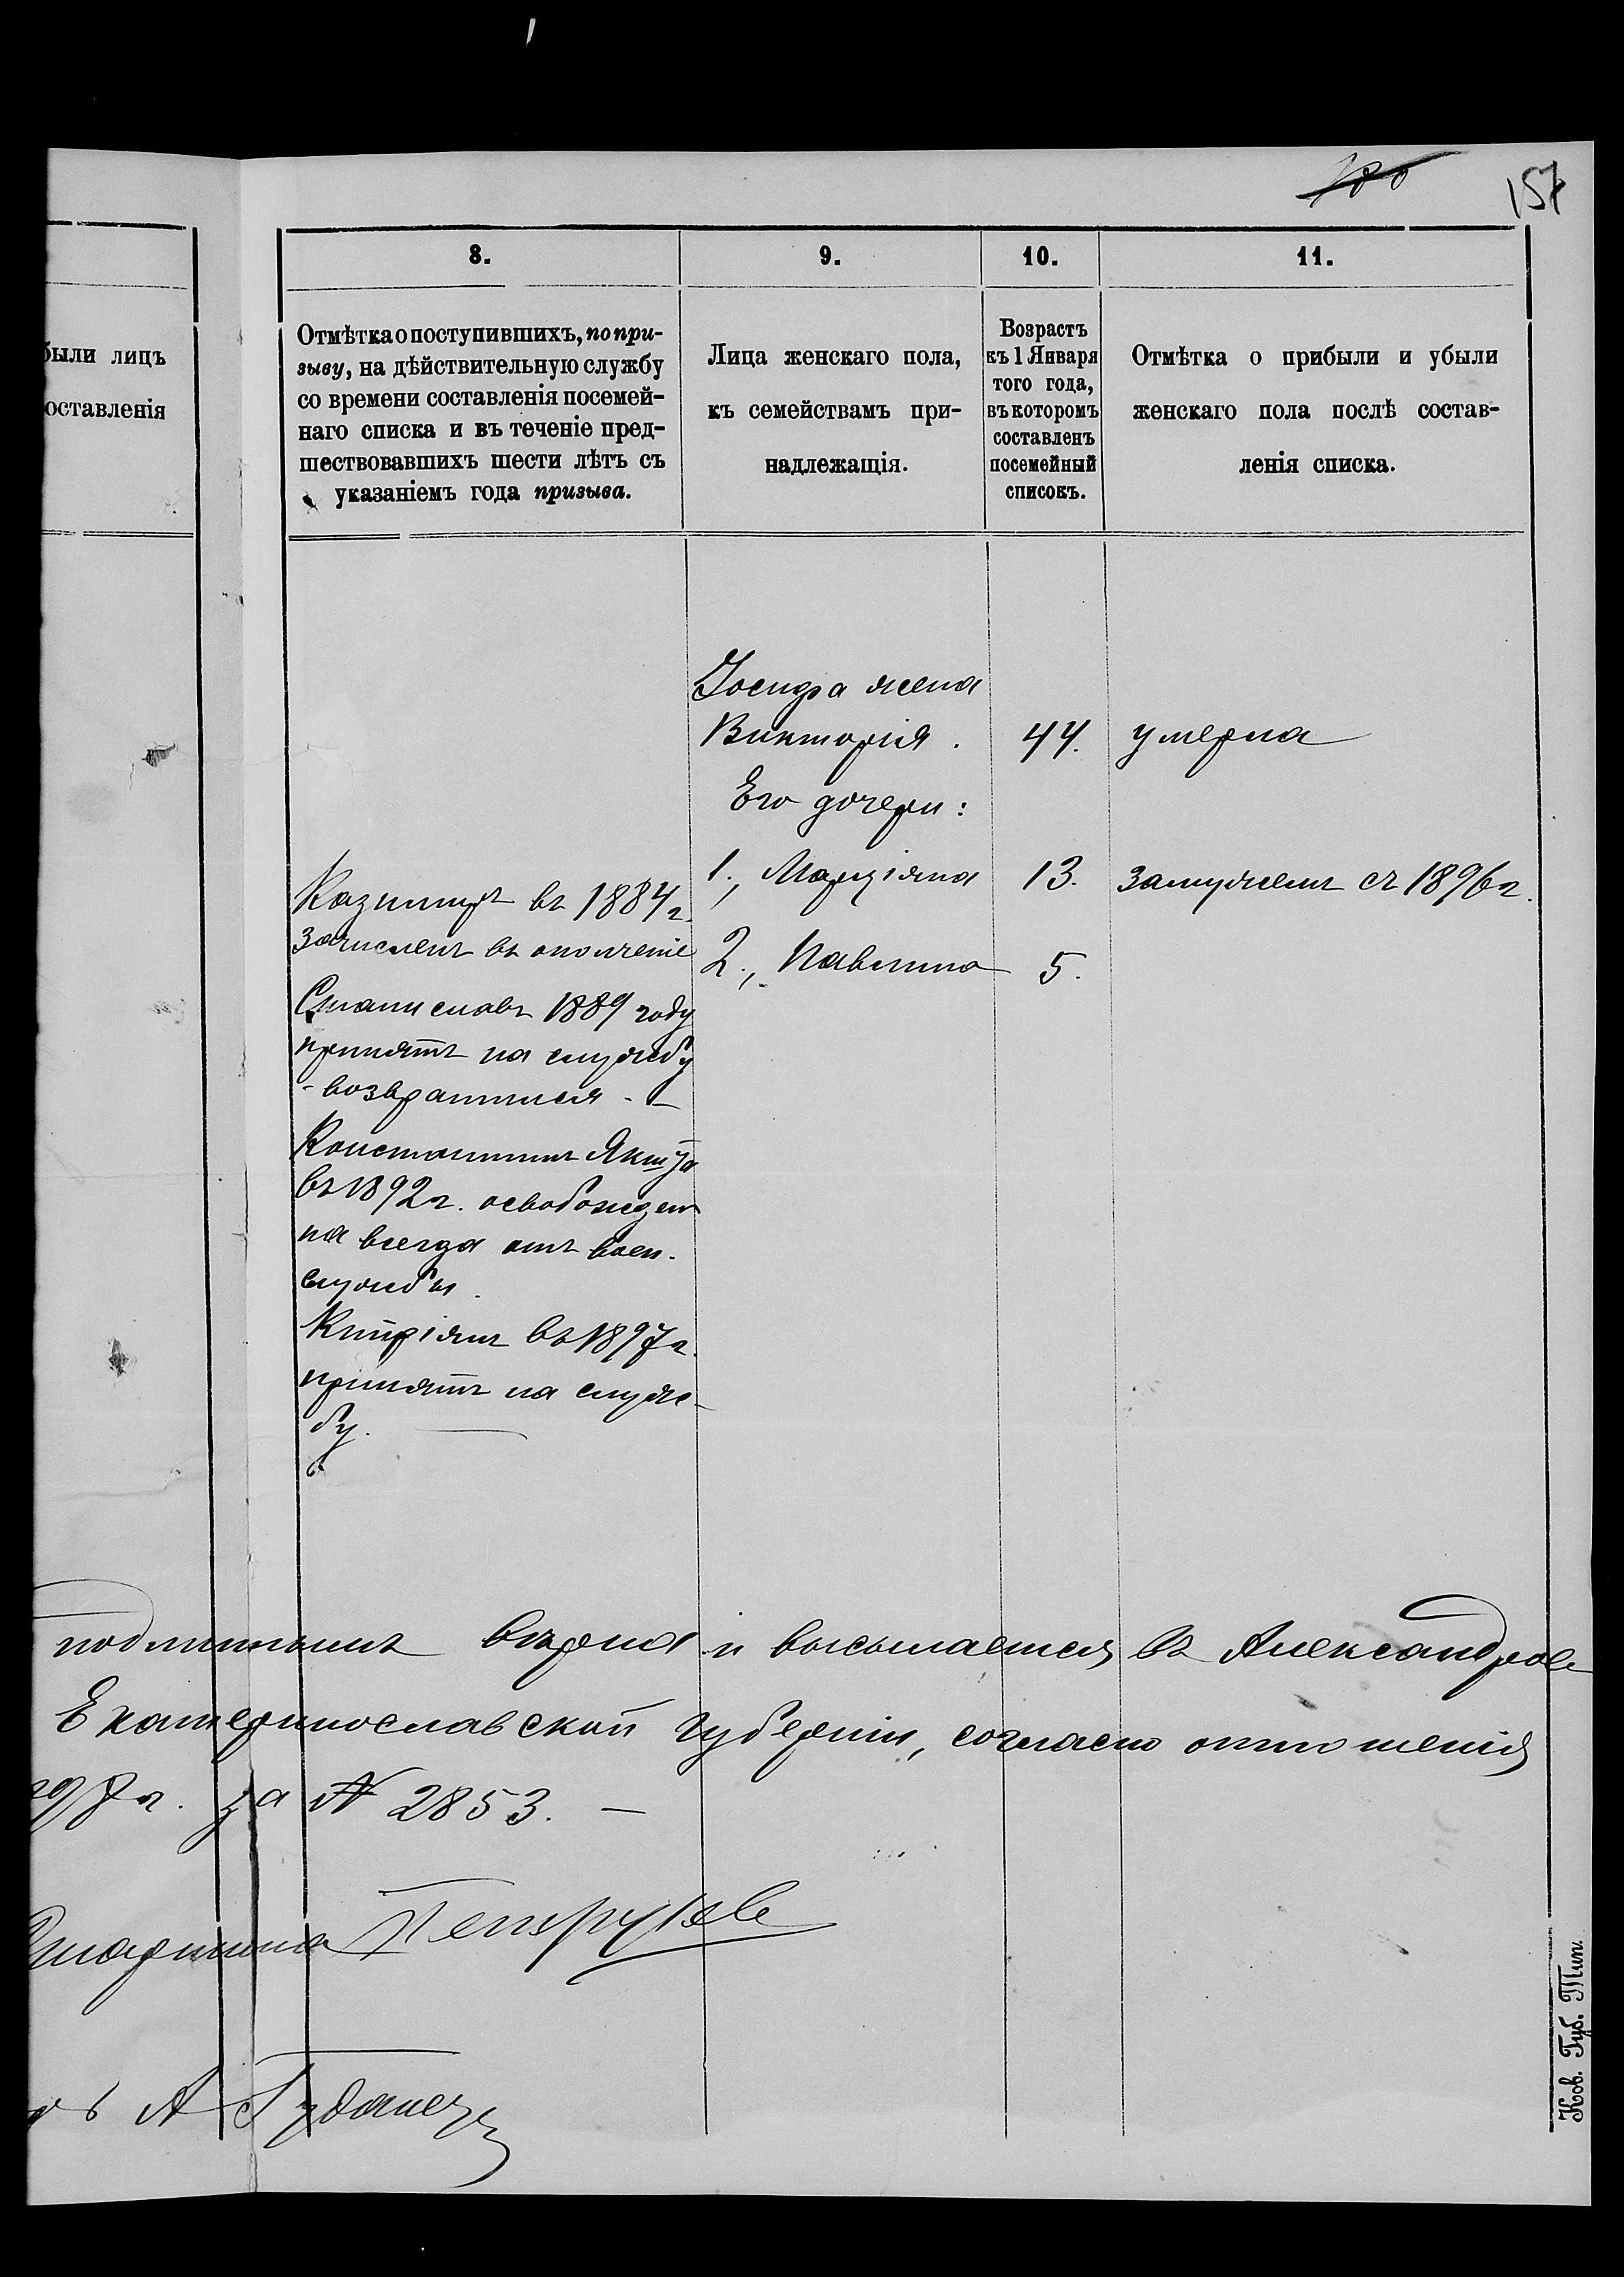 157
были лицъ
оставленія
8.
Отмѣтка о поступившихъ, по при-
зыву, на дѣйствительную службу
со времени составленія посемей-
наго списка и въ теченіе пред-
шествовавшихъ шести лѣтъ съ
указаніемъ года призыва.
9.
Лица женскаго пола,
къ семействамъ при-
надлежащія.
10.
Возрастъ
къ 1 Января
того года,
въ которомъ
составленъ
посемейный
списокъ.
11.
Отмѣтка о прибыли и убыли
женскаго пола послѣ состав-
ленія списка.
Казимиръ въ 1884 г.
зачисленъ въ ополченіе
Станиславъ 1889 году
принятъ на службу
- возвратился. -
Константинъ
въ 1892 г. освобожденъ
на всегда отъ воен.
службы.
Кипріянъ въ 1897 г.
принятъ на служ-
бу.
Іосифа жена
Викторія. 44. умерла
Его дочери:
1., Марціяна 13. замужемъ съ 1896 г.
2., Павлина 5.
подлиннымъ вѣрна и высылается въ Александров
Екатеринославской губерніи, согласно отношенія
г. за № 2853. —
Старшина
А
Ков. Губ. Тип.